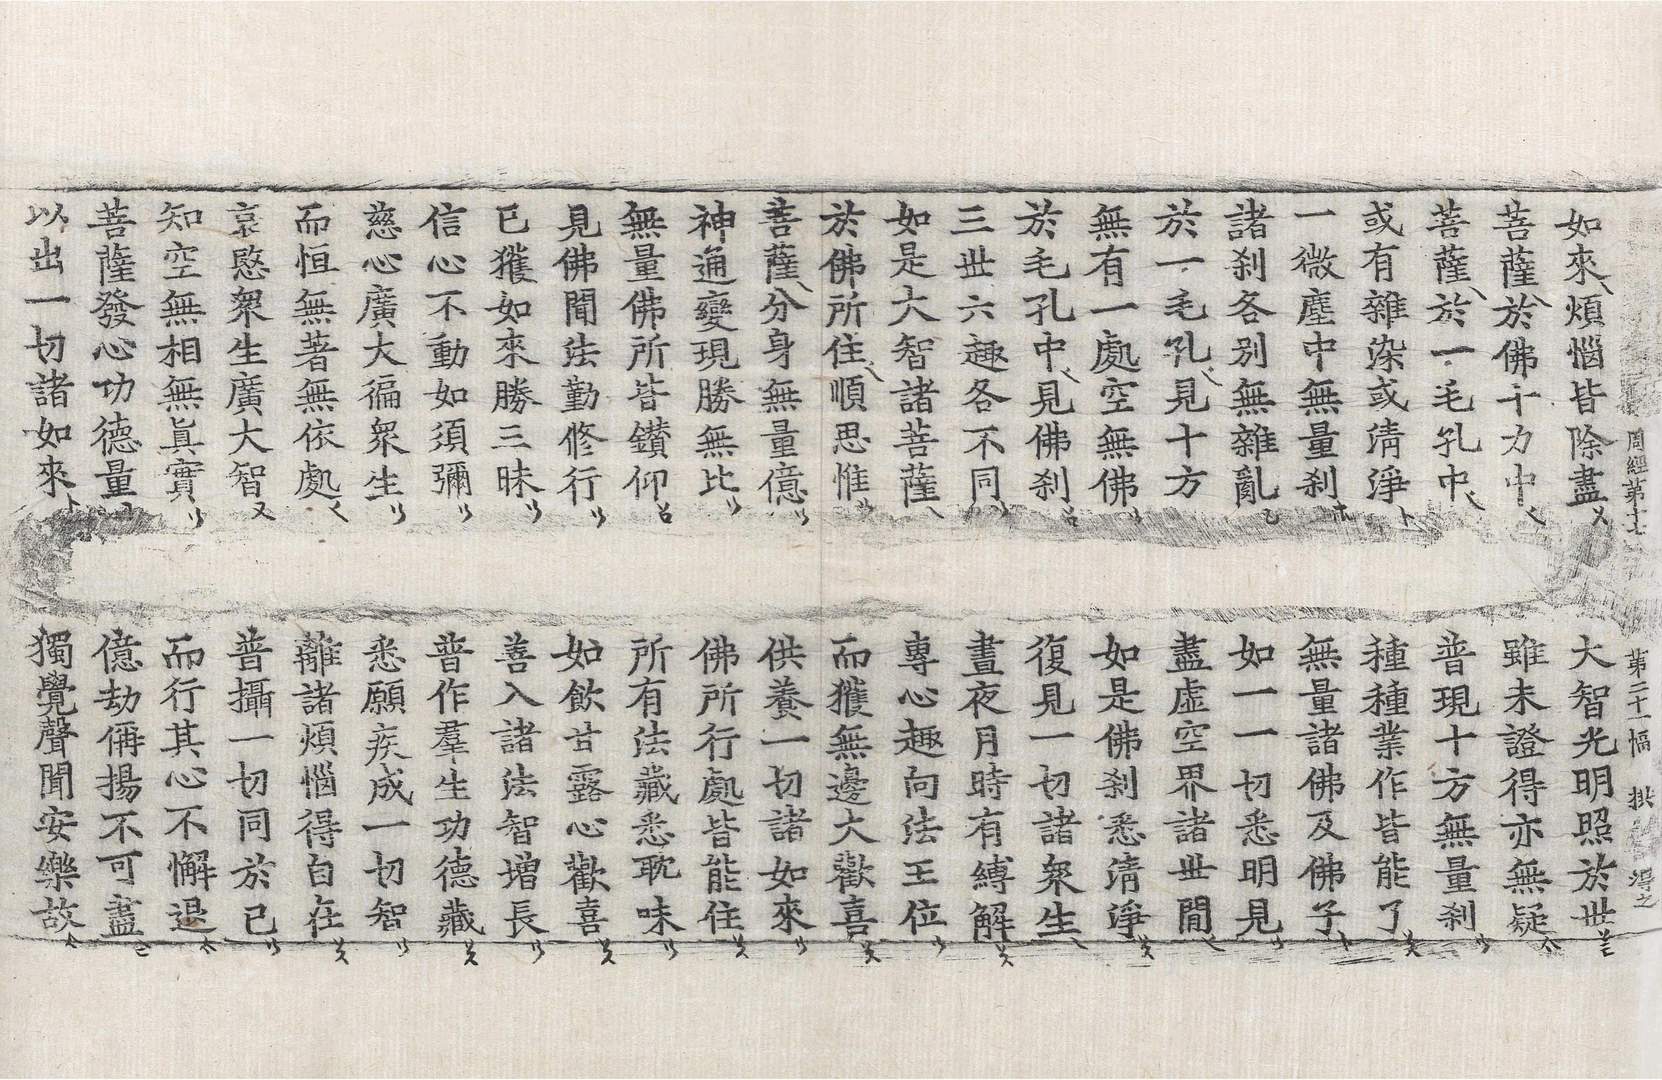 周經第十七
第二十一幅
得之
如來煩惱皆除盡
大智光明照於世
菩薩於佛十力中
雖未證得亦無疑
菩薩於一毛孔中
普現十方無量刹
或有雜染或清淨
種種業作皆能了
一微塵中無量刹
無量諸佛及佛子
諸刹各別無雜亂
如一一切悉明見
於一毛孔見十方
盡虛空界諸世間
無有一處空無佛
如是佛刹悉清淨
於毛孔中見佛刹
復見一切諸衆生
三世六趣各不同
晝夜月時有縛解
如是大智諸菩薩
專心趣向法王位
於佛所住順思惟
而獲無邊大歡喜
菩薩分身無量億
供養一切諸如來
神通變現勝無比
佛所行處皆能住
無量佛所皆鑽仰
所有法藏悉耽味
見佛聞法勤修行
如飮甘露心歡喜
已獲如來勝三昧
善入諸法智增長
信心不動如須彌
普作羣生功德藏
慈心廣大徧衆生
悉願疾成一切智
而恒無著無依處
離諸煩惱得自在
哀愍衆生廣大智
普攝一切同於已
知空無相無眞實
而行其心不懈退
菩薩發心功德量
億劫偁揚不可盡
以出一切諸如來
獨覺聲聞安樂故